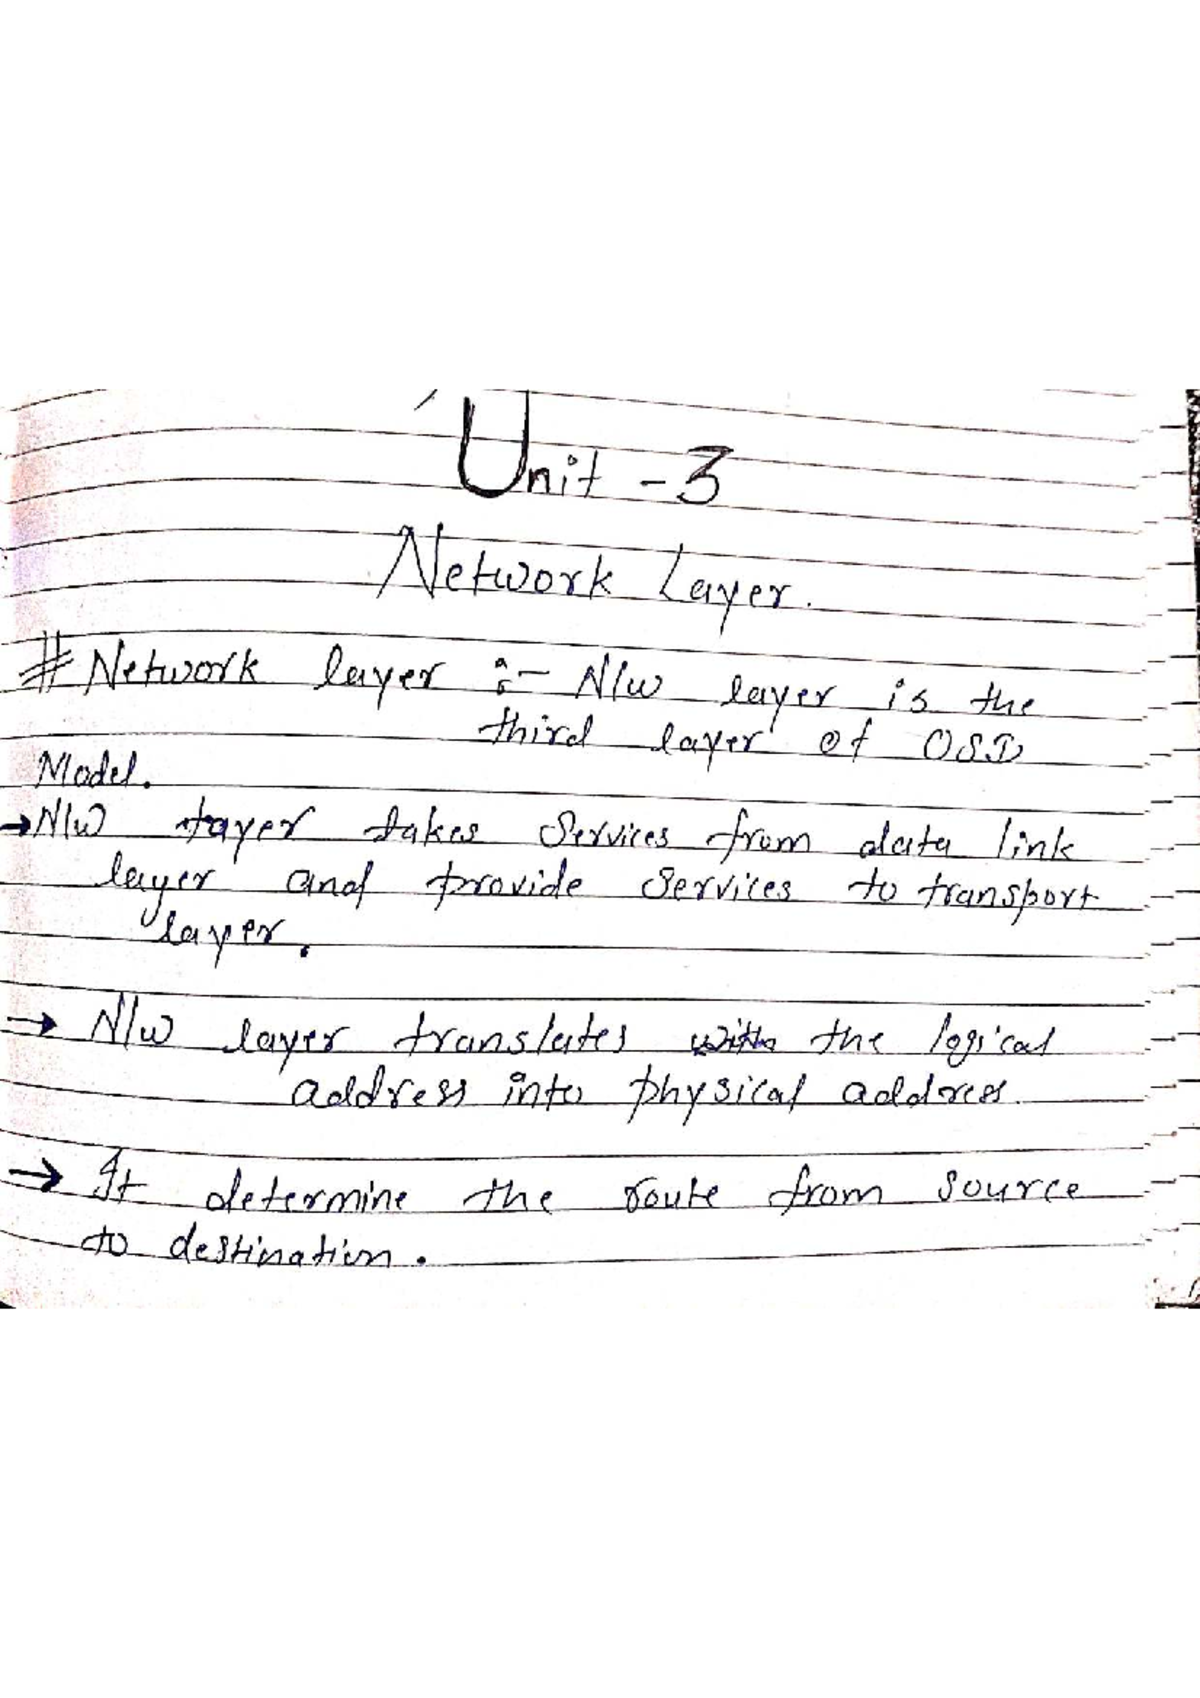 Unit - 3
Network Layer.
# Network layer :- N/w layer is the
third layer of OSI
Model.
→ N/w layer takes services from data link
layer and provide services to transport
layer.
→ N/w layer translates with the logical
address into physical address.
→ It determine the route from source
to destination.